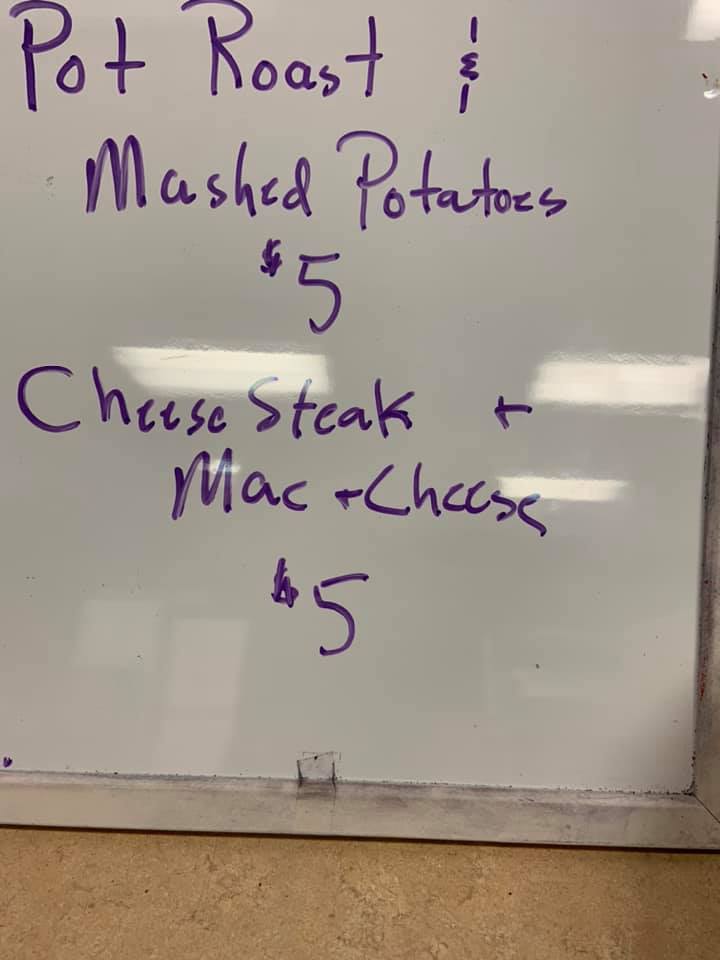 Pot Roast &
Mashed Potatoes
$5
Cheese Steak +
Mac + Cheese
$5